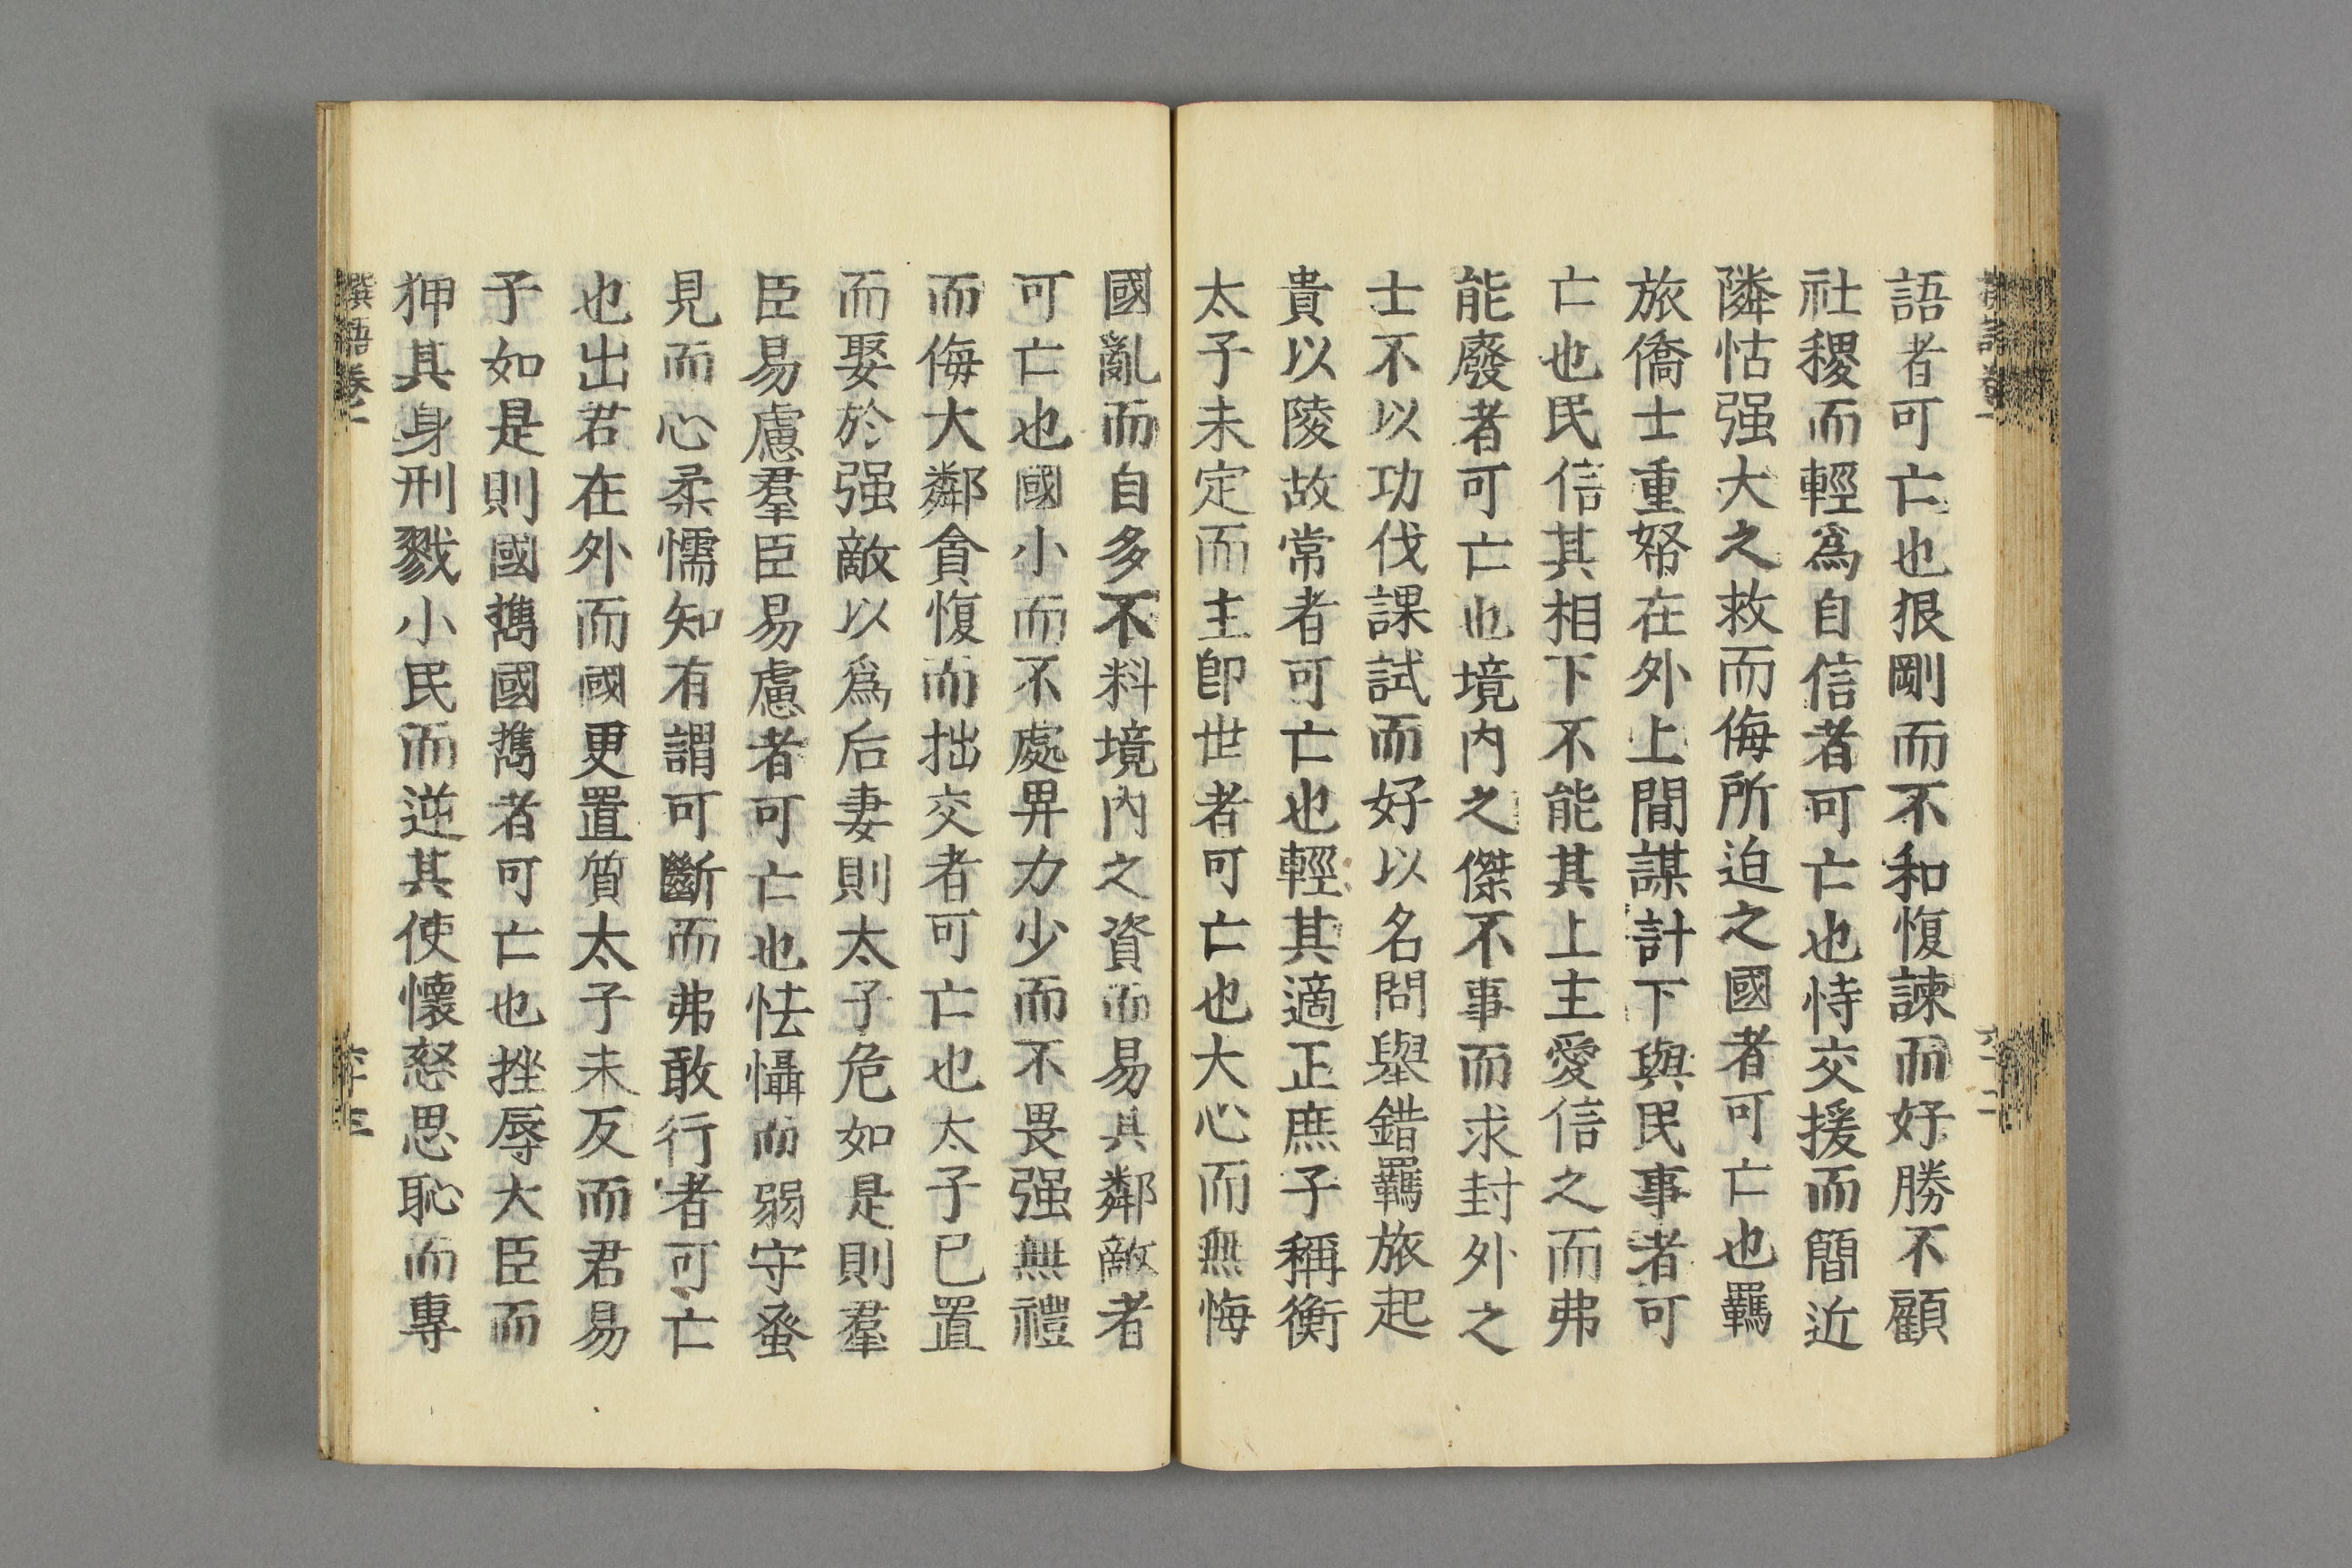 語者可亡也狠剛而不和愎諫而好勝不顧
社稷而輕爲自信者可亡也恃交援而簡近
隣怙强大之救而侮所迫之國者可亡也羈
旅僑士重帑在外上閒謀計下與民事者可
亡也民信其相下不能其上主愛信之而弗
能廢者可亡也境内之傑不事而求封外之
士不以功伐課試而好以名問舉錯羈旅起
貴以陵故常者可亡也輕其適正庶子稱衡
太子未定而主卽世者可亡也大心而無悔
國亂而自多不料境内之資而易其鄰敵者
可亡也國小而不處畀力少而不畏强無禮
而侮大鄰貪愎而拙交者可亡也太子已置
而娶於强敵以爲后妻則太子危如是則羣
臣易慮羣臣易慮者可亡也怯懾而弱守蚤
見而心柔懦知有謂可斷而弗敢行者可亡
也出君在外而國更置質太子未反而君易
子如是則國擕國擕者可亡也挫辱大臣而
狎其身刑戮小民而逆其使懷怒思恥而專